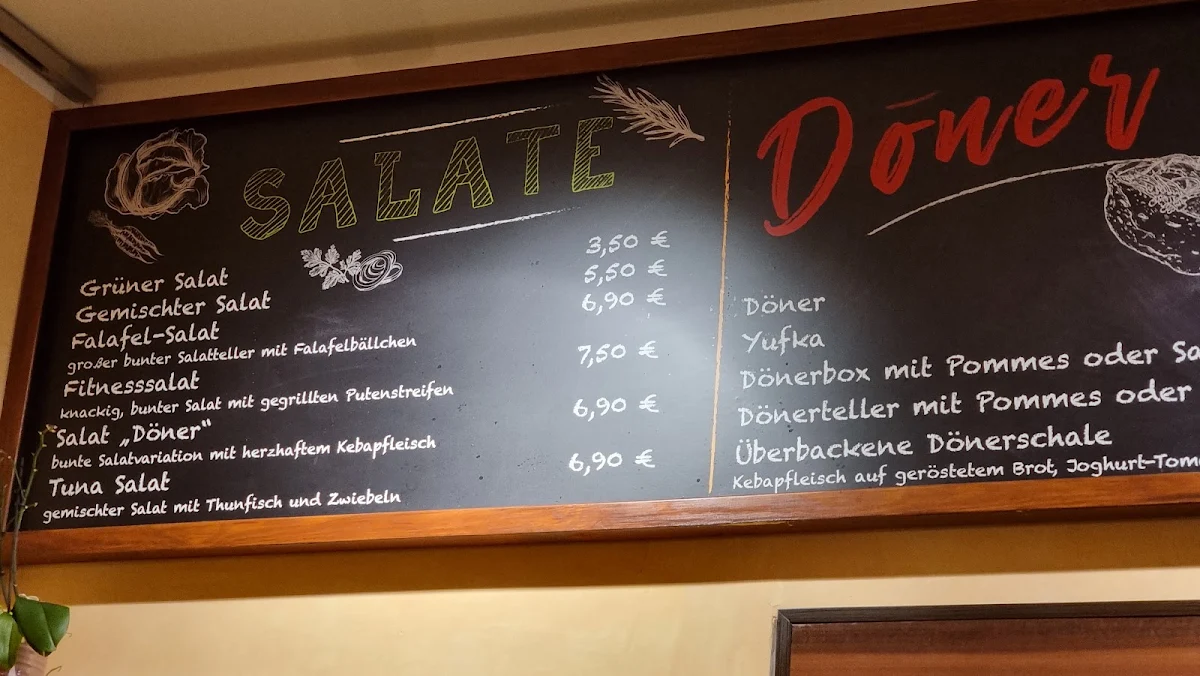 SALATE
Grüner Salat 3,50 €
Gemischter Salat 5,50 €
Falafel-Salat 6,90 €
großer bunter Salatteller mit Falafelbällchen
Fitnesssalat 7,50 €
knackig, bunter Salat mit gegrillten Putenstreifen
Salat „Döner“ 6,90 €
bunte Salatvariation mit herzhaftem Kebapfleisch
Tuna Salat 6,90 €
gemischter Salat mit Thunfisch und Zwiebeln
Döner
Döner
Yufka
Dönerbox mit Pommes oder Sa
Dönerteller mit Pommes oder
Überbackene Dönerschale
Kebapfleisch auf geröstetem Brot, Joghurt-Toma